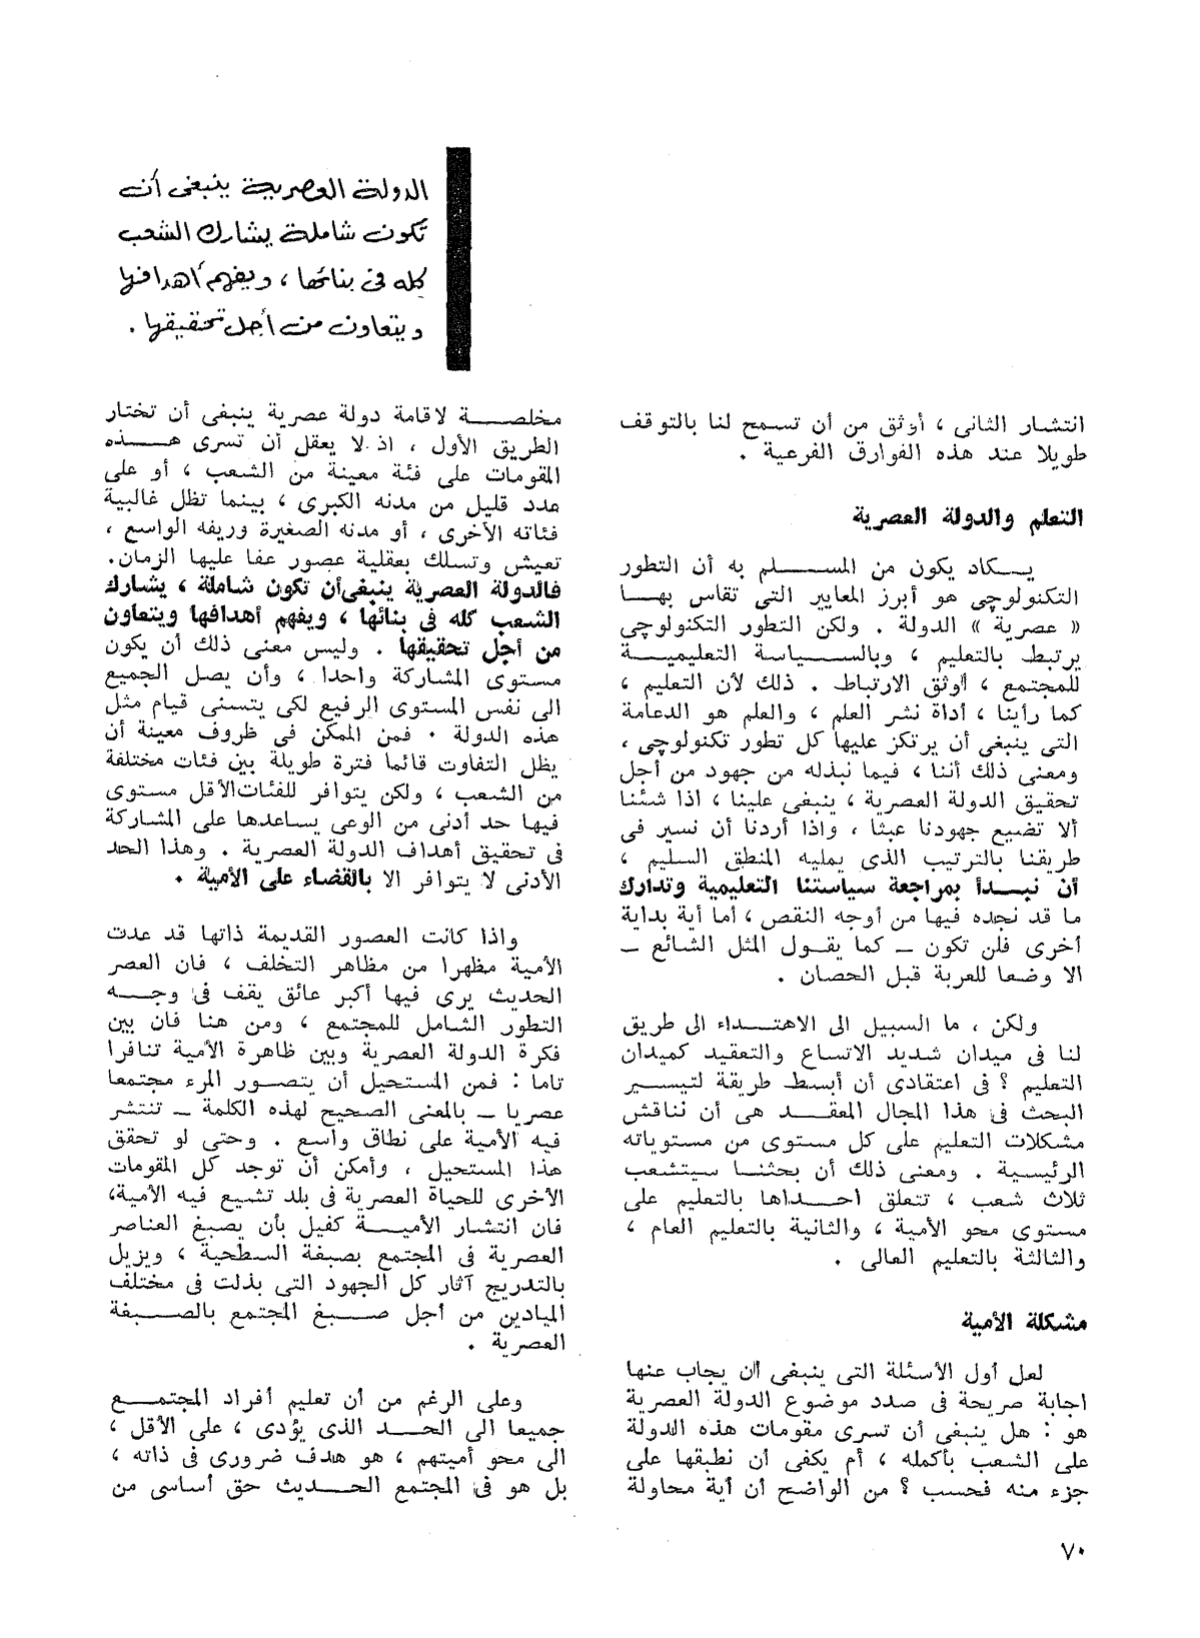 الدولة العصرية ينبغى أن
تكون شاملة يشارك الشعب
كله فى بنائها ، ويفهم أهدافها
ويتعاون من أجل تحقيقها .
انتشار الثانى ، أوثق من أن تسمح لنا بالتوقف
طويلا عند هذه الفوارق الفرعية .
التعلم والدولة العصرية
يـــكاد يكون من المســـــلم به أن التطور
التكنولوچى هو أبرز المعايير التى تقاس بهـــا
« عصرية » الدولة . ولكن التطور التكنولوچى
يرتبط بالتعليم ، وبالســـياسة التعليميـــة
للمجتمع ، أوثق الارتباط . ذلك لأن التعليم ،
كما رأينا ، أداة نشر العلم ، والعلم هو الدعامة
التى ينبغى أن يرتكز عليها كل تطور تكنولوچى ،
ومعنى ذلك أننا ، فيما نبذله من جهود من أجل
تحقيق الدولة العصرية ، ينبغى علينا ، اذا شئنا
ألا تضيع جهودنا عبثا ، واذا أردنا أن نسير فى
طريقنا بالترتيب الذى يمليه المنطق السليم ،
أن نبـــدأ بمراجعة سياستنا التعليمية وتدارك
ما قد نجده فيها من أوجه النقص ، أما أية بداية
أخرى فلن تكون ــ كما يقـول المثل الشائع ــ
الا وضعا للعربة قبل الحصان .
ولكن ، ما السبيل الى الاهتـــداء الى طريق
لنا فى ميدان شديد الاتساع والتعقيد كميدان
التعليم ؟ فى اعتقادى أن أبسط طريقة لتيســـير
البحث فى هذا المجال المعقـــد هى أن نناقش
مشكلات التعليم على كل مستوى من مستوياته
الرئيسية . ومعنى ذلك أن بحثنـــا سيتشعب
ثلاث شعب ، تتعلق احـــداها بالتعليم على
مستوى محو الأمية ، والثانية بالتعليم العام ،
والثالثة بالتعليم العالى .
مشكلة الأمية
لعل أول الأسئلة التى ينبغى أن يجاب عنها
اجابة صريحة فى صدد موضوع الدولة العصرية
هو : هل ينبغى أن تسرى مقومات هذه الدولة
على الشعب بأكمله ، أم يكفى أن نطبقها على
جزء منه فحسب ؟ من الواضح أن أية محاولة
مخلصـــــة لاقامة دولة عصرية ينبغى أن تختار
الطريق الأول ، اذ لا يعقل أن تسرى هـــذه
المقومات على فئة معينة من الشعب ، أو على
عدد قليل من مدنه الكبرى ، بينما تظل غالبية
فئاته الأخرى ، أو مدنه الصغيرة وريفه الواسع ،
تعيش وتسلك بعقلية عصور عفا عليها الزمان.
فالدولة العصرية ينبغى أن تكون شاملة ، يشارك
الشعب كله فى بنائها ، ويفهم أهدافها ويتعاون
من أجل تحقيقها . وليس معنى ذلك أن يكون
مستوى المشاركة واحدا ، وأن يصل الجميع
الى نفس المستوى الرفيع لكى يتسنى قيام مثل
هذه الدولة . فمن الممكن فى ظروف معينة أن
يظل التفاوت قائما فترة طويلة بين فئات مختلفة
من الشعب ، ولكن يتوافر للفئات الأقل مستوى
فيها حد أدنى من الوعى يساعدها على المشاركة
فى تحقيق أهداف الدولة العصرية . وهذا الحد
الأدنى لا يتوافر الا بالقضاء على الأمية .
واذا كانت العصور القديمة ذاتها قد عدت
الأمية مظهرا من مظاهر التخلف ، فان العصر
الحديث يرى فيها أكبر عائق يقف فى وجـــه
التطور الشامل للمجتمع ، ومن هنا فان بين
فكرة الدولة العصرية وبين ظاهرة الأمية تنافرا
تاما : فمن المستحيل أن يتصـــور المرء مجتمعا
عصريا ــ بالمعنى الصحيح لهذه الكلمة ــ تنتشر
فيه الأمية على نطاق واسع . وحتى لو تحقق
هذا المستحيل ، وأمكن أن توجد كل المقومات
الأخرى للحياة العصرية فى بلد تشيع فيه الأمية،
فان انتشار الأميـــة كفيل بأن يصبغ العناصر
العصرية فى المجتمع بصبغة السطحية ، ويزيل
بالتدريج آثار كل الجهود التى بذلت فى مختلف
الميادين من أجل صـــبغ المجتمع بالصـــبغة
العصرية .
وعلى الرغم من أن تعليم أفراد المجتمـــع
جميعا الى الحـــد الذى يؤدى ، على الأقل ،
الى محو أميتهم ، هو هدف ضرورى فى ذاته ،
بل هو فى المجتمع الحـــديث حق أساسى من
٧٠